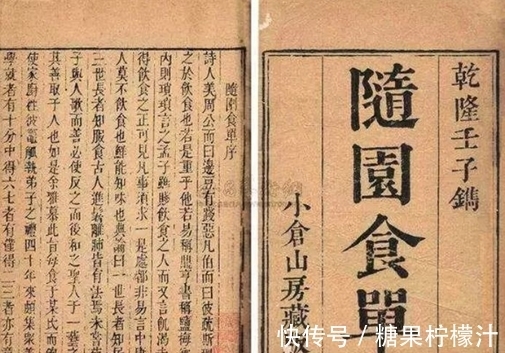 乾隆壬子鐫
隨園食單
小倉山房藏
隨園食單序
詩人美周公而曰籩豆有踐惡凡伯而曰彼疏斯
之於飲食也若是重乎他若易稱鼎亨書稱鹽
內則瑣瑣言之孟子雖賤飲食之人而又言飢
得飲食之正可見凡事須求一是處都非易言中
人莫不飲食也鮮能知味也典論曰一世長者
三世長者知服食古人進鬐離肺皆有法焉未
子與人歌而善必使反之而後和之聖人于一
其善取于人也如是余雅慕此旨每食于某氏而
使家廚往彼灶觚執弟子之禮四十年來頗集衆
學就者有十分中得六七者有僅得二三者亦有
快传号／糖果柠檬汁